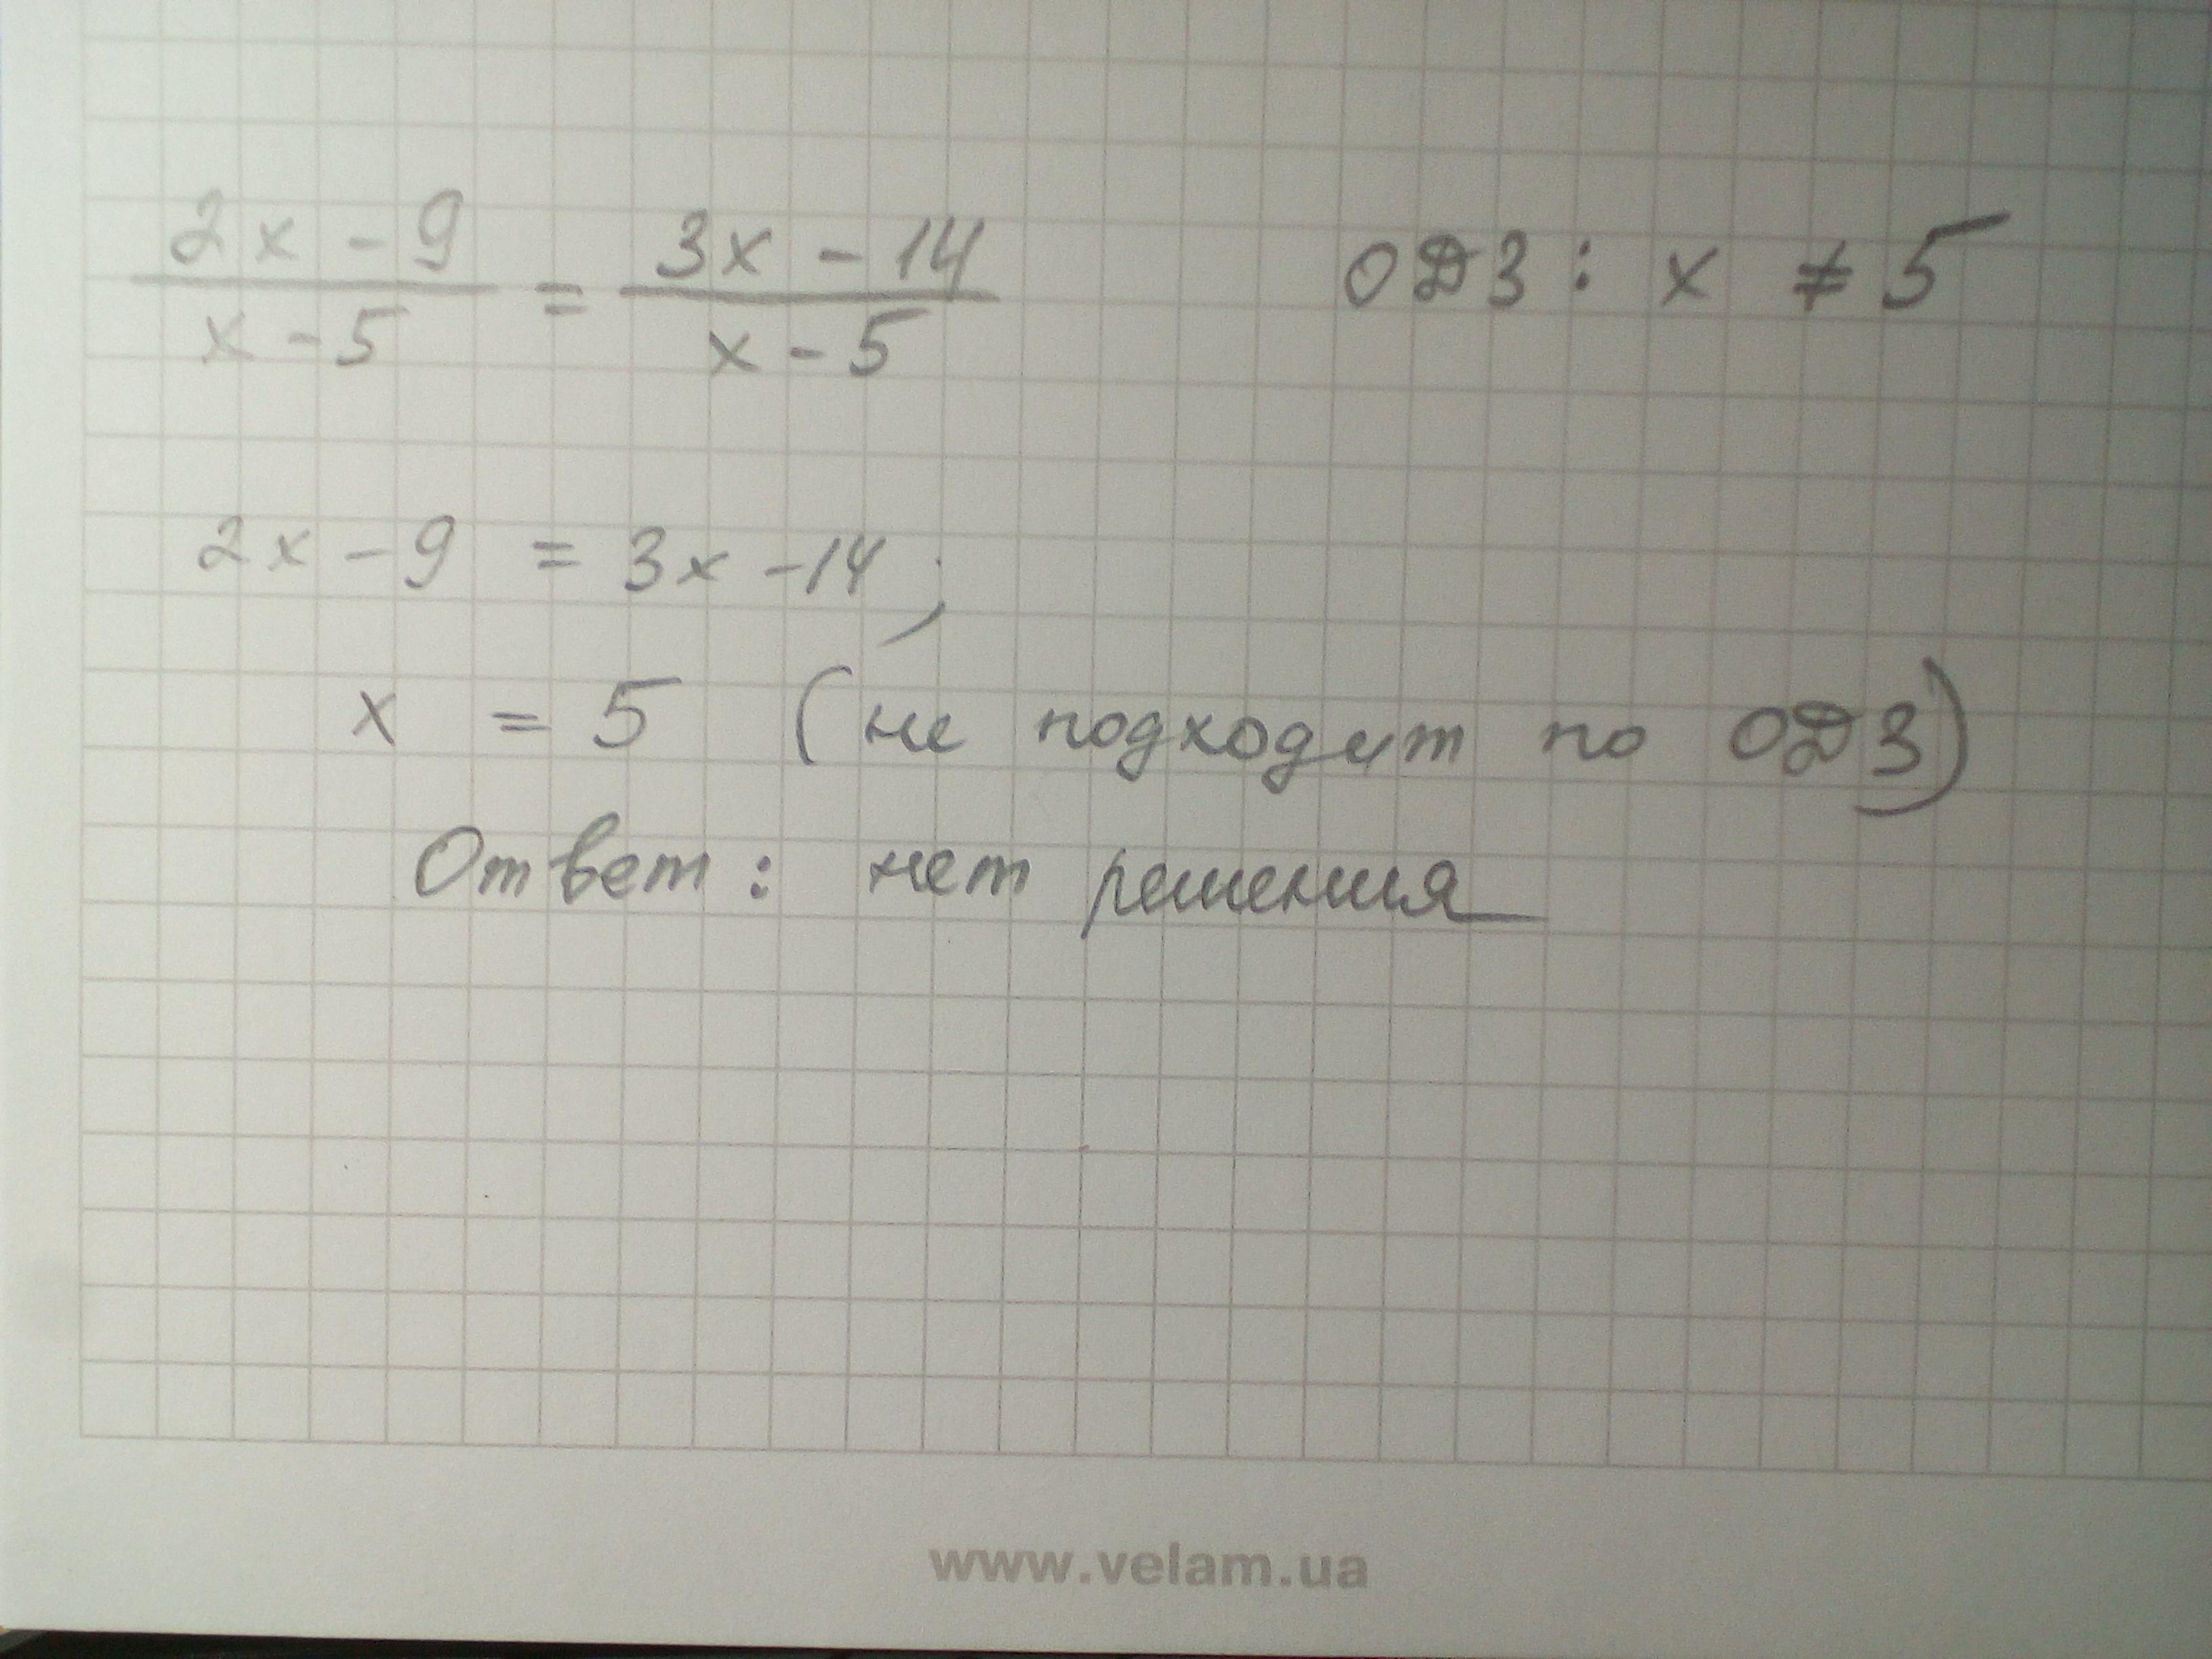 2x - 9 / x - 5 = 3x - 14 / x - 5 ОДЗ: x ≠ 5
2x - 9 = 3x - 14;
x = 5 (не подходит по ОДЗ)
Ответ: нет решения
www.velam.ua